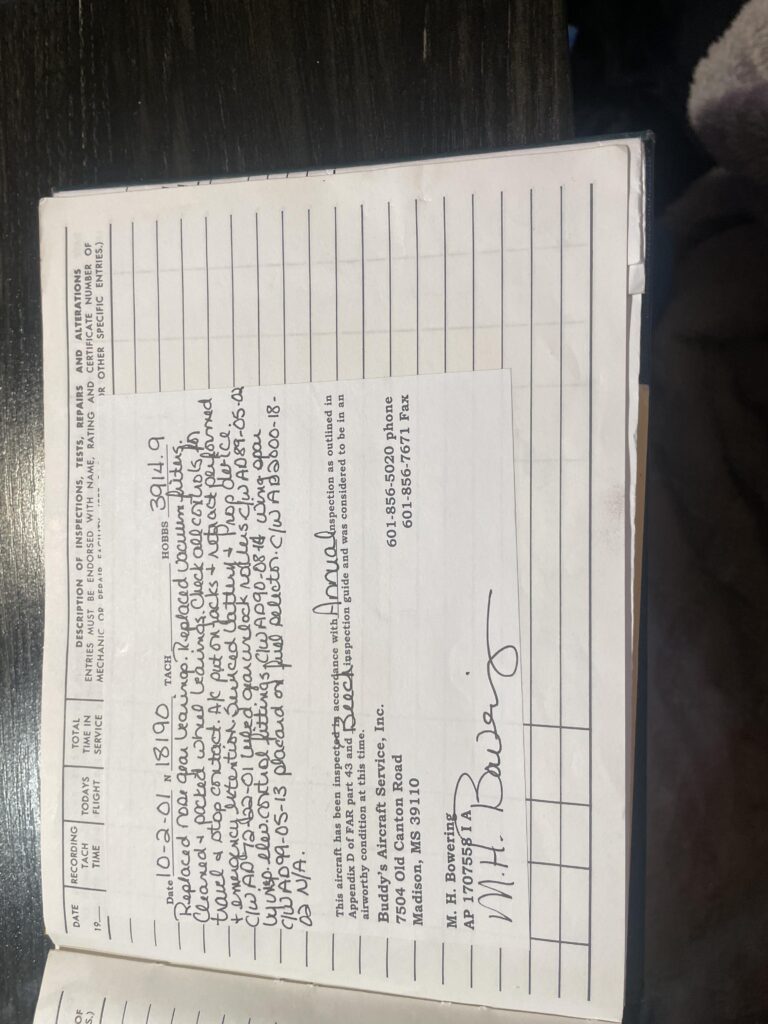 DATE
19
RECORDING TACH TIME
TODAYS FLIGHT
TOTAL TIME IN SERVICE
DESCRIPTION OF INSPECTIONS, TESTS, REPAIRS AND ALTERATIONS
ENTRIES MUST BE ENDORSED WITH NAME, RATING AND CERTIFICATE NUMBER OF
MECHANIC OR REPAIR OR OTHER SPECIFIC ENTRIES.)
Date 10-2-01 N 18190 TACH HOBBS 3914.9
Replaced nose gear bearings. Replaced vacuum filters.
Cleaned + packed wheel bearings. Check all controls for
travel & stop contact. A/C put on jacks + retract performed
+ emergency extention. Serviced battery + prop deice.
C/W AD 72-22-01 lubed gear uplock rollers C/W AD 89-05-02
insp. elev. control fittings, C/W AD 90-08-14 wing spar
C/W AD 99-05-13 placard on fuel selector. C/W AD 2000-18-
02 N/A.
This aircraft has been inspected in accordance with Annual inspection as outlined in
Appendix D of FAR part 43 and Beech inspection guide and was considered to be in an
airworthy condition at this time.
Buddy's Aircraft Service, Inc.
7504 Old Canton Road 601-856-5020 phone
Madison, MS 39110 601-856-7671 Fax
M. H. Bowering
AP 1707558 I A
M. H. Bowering
OF
S.)